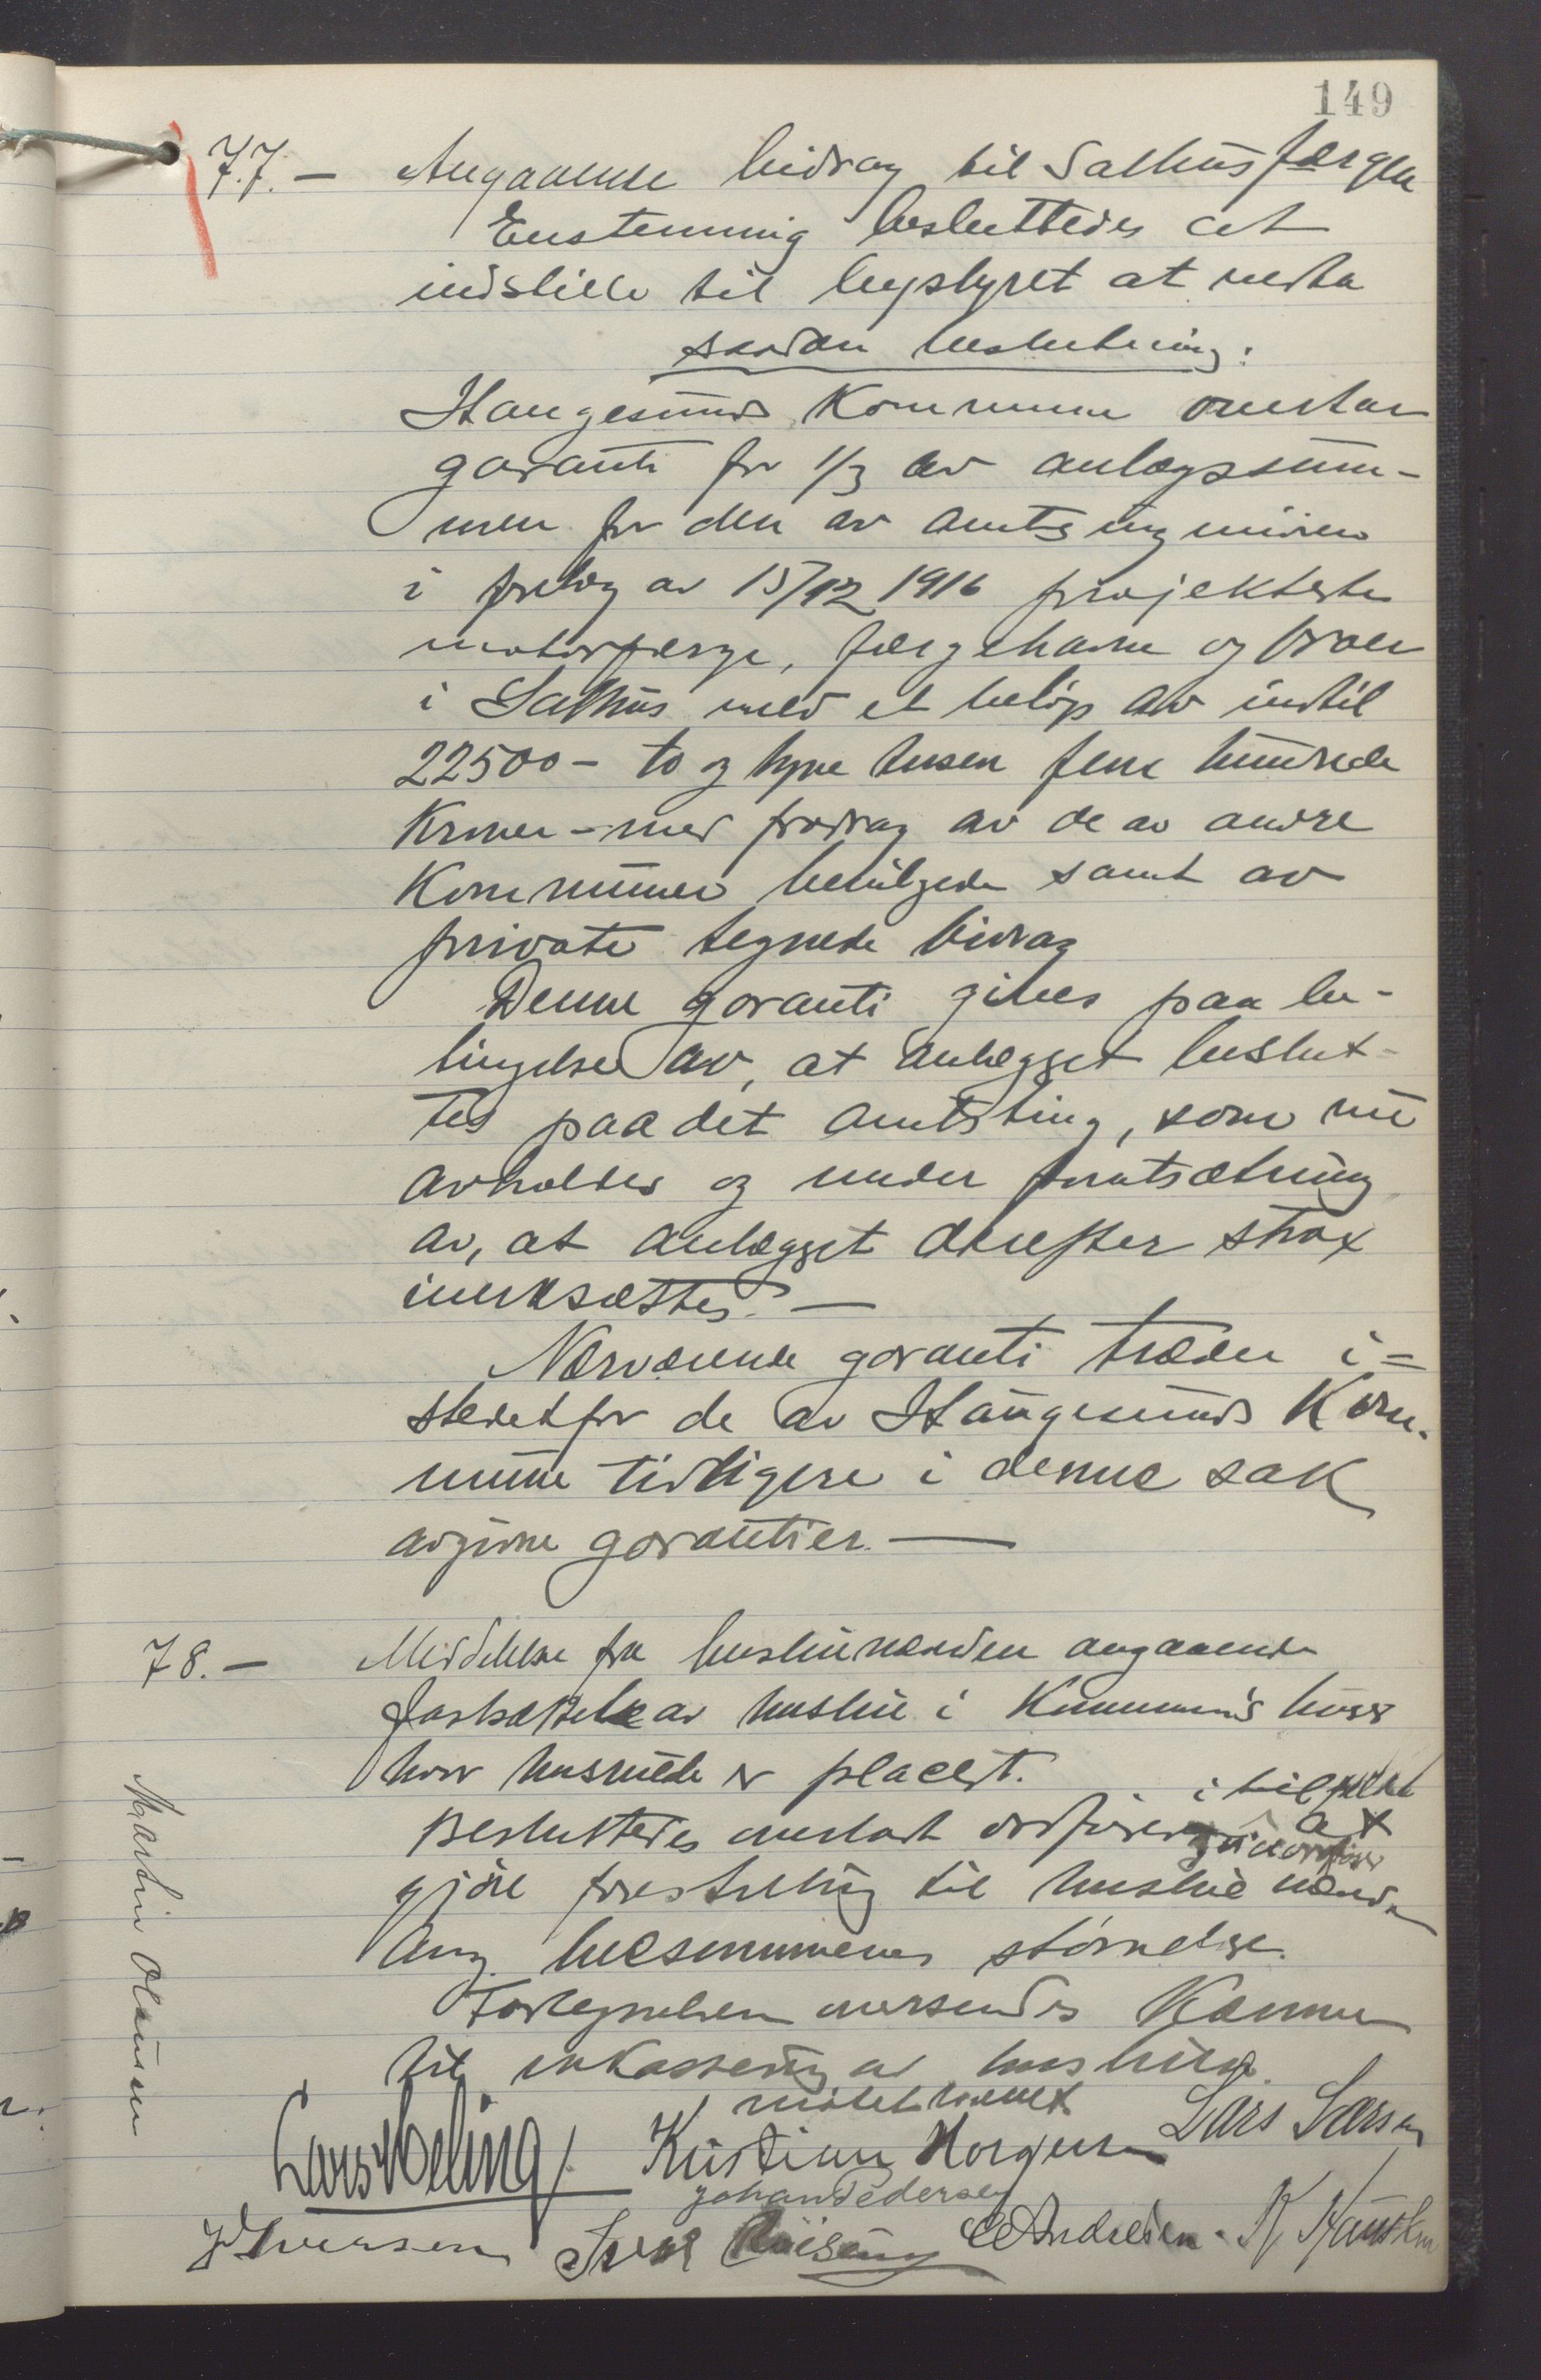 149
77. — Angaaende bidrag til Salhusfærgen
Enstemmig besluttedes at
indstille til bystyret at vedta
saadan beslutning:
Haugesunds Kommune overtar
garanti for 1/3 av anlægssum-
men for den av amtsingeniøren
i forslag av 15/12 1916 projekterte
motorfærge, færgehavne og broer
i Salhus med et beløp av indtil
22500 – to og tyve tusen fem hundrede
Kroner – med fradrag av de av andre
Kommuner bevilgede samt av
private tegnede bidrag
Denne garanti gives paa be-
tingelse av, at anlægget beslut-
tes paa det amtsting, som nu
avholdes og under forutsætning
av, at anlægget derefter strax
iverksættes. —
Nærværende garanti træder i=
stedetfor de av Haugesunds Kom-
mune tidligere i denne sak
avgivne garantier. —
78. — Meddelelse fra husleienævnden angaaende
fastsættelse av husleie i Kommunens huse
hvor husvilde er placert.
i tilfælde
Besluttedes overlatt ordfører at
viceordfører
gjøre forestilling til husleienævnden
ang. leiesummenes størrelse.
Fortegnelsen oversendes Kæmner
til inkassering av husleien.
møtet hævet
Martin Olausen
Lars Meling Kristian Horgen Lars Larsen
Johan Pedersen
J Iversen Sverre Røisung C Andresen. K Knutsen